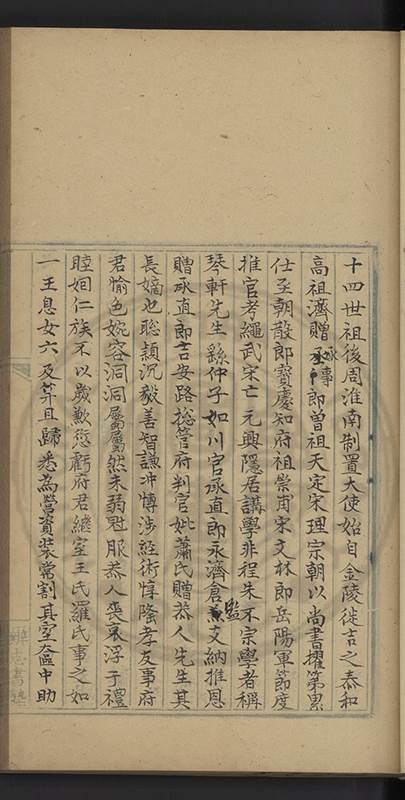 十四世祖後周淮南制置大使始自金陵徙吉之泰和
高祖濟贈承事郎曾祖天定宋理宗朝以尚書擢第累
仕至朝散郎寶慶知府祖崇甫宋文林郎岳陽軍節度
推官考繩武宋亡元興隱居講學非程朱不宗學者稱
琴軒先生繇仲子如川官承直郎永濟倉監支納推恩
贈承直郎吉安路總管府判官妣蕭氏贈恭人先生其
長嫡也聰頴沉毅善智謙冲愽涉經術惇隆孝友事府
君愉色婉容洞洞屬屬然未弱冠服恭人喪哀浮于禮
睦姻仁族不以歲歉愆虧府君繼室王氏羅氏事之如
一王息女六及笄且歸悉為營資裝常割其室奩中助